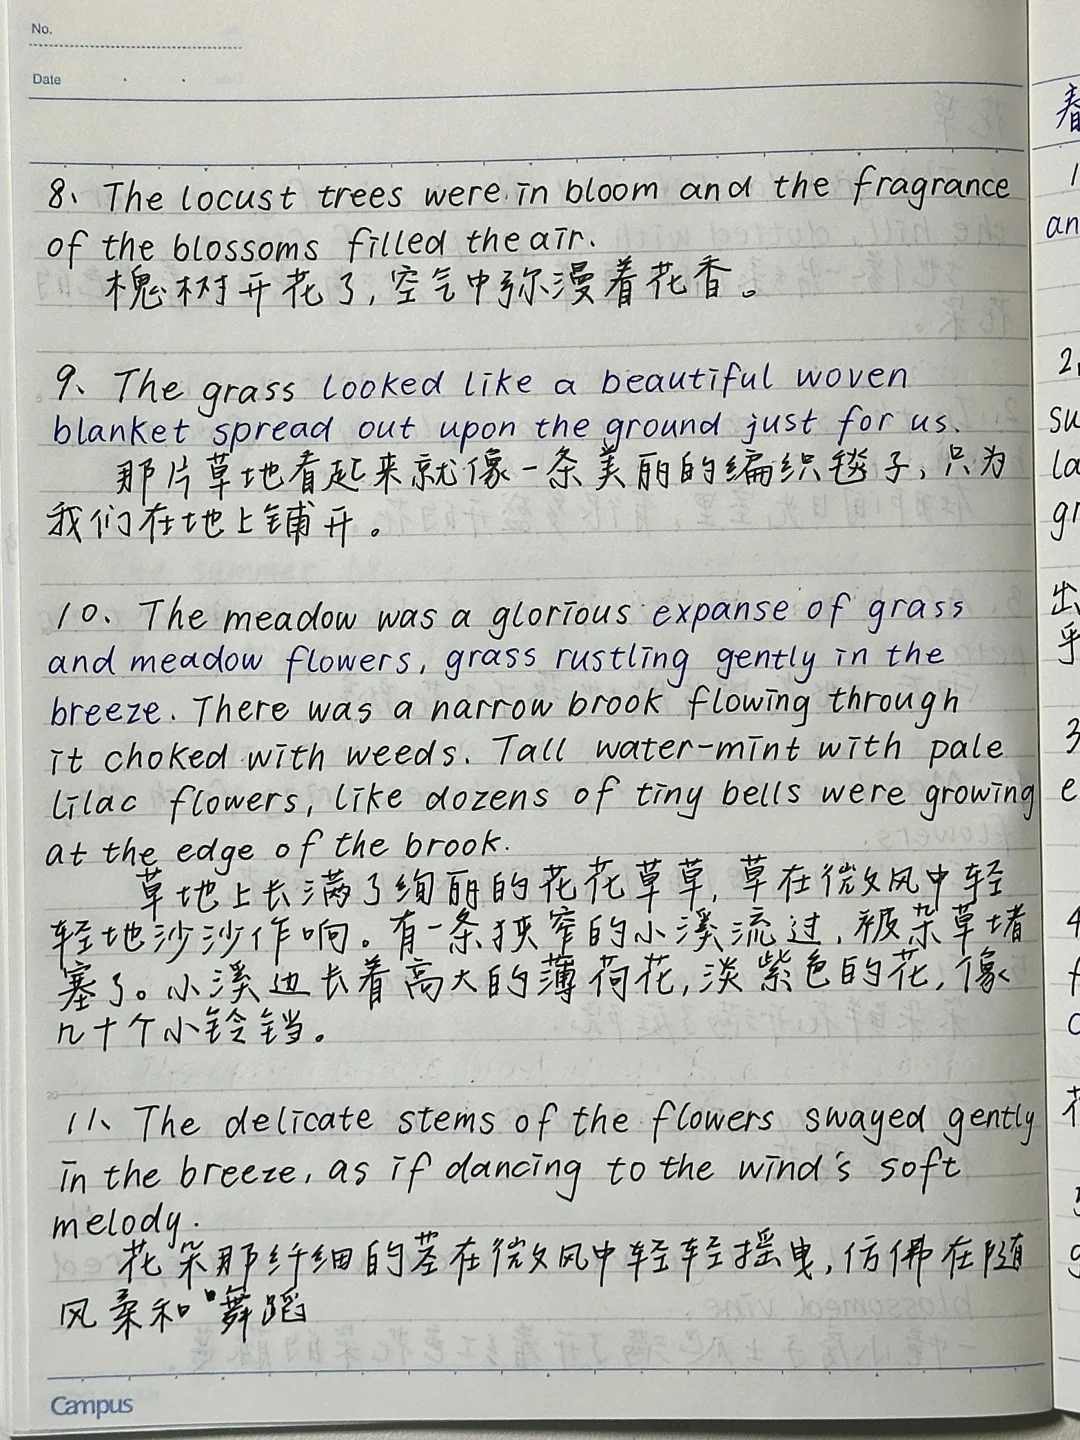 No.
Date
8、The locust trees were in bloom and the fragrance
of the blossoms filled the air.
槐树开花了,空气中弥漫着花香。
9、The grass looked like a beautiful woven
blanket spread out upon the ground just for us.
那片草地看起来就像一条美丽的编织毯子,只为
我们在地上铺开。
10、The meadow was a glorious expanse of grass
and meadow flowers, grass rustling gently in the
breeze. There was a narrow brook flowing through
it choked with weeds. Tall water-mint with pale
lilac flowers, like dozens of tiny bells were growing
at the edge of the brook.
草地上长满了绚丽的花花草草,草在微风中轻
轻地沙沙作响。有一条狭窄的小溪流过,被杂草堵
塞了。小溪边长着高大的薄荷花,淡紫色的花,像
几十个小铃铛。
11、The delicate stems of the flowers swayed gently
in the breeze, as if dancing to the wind's soft
melody.
花朵那纤细的茎在微风中轻轻摇曳,仿佛在随
风柔和舞蹈
Campus
春
1
an
2
su
la
gr
出
乎
3
e
4
f
花
5
g